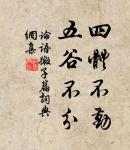 四體不勤
五谷不分
論語微子篇詞典
網集